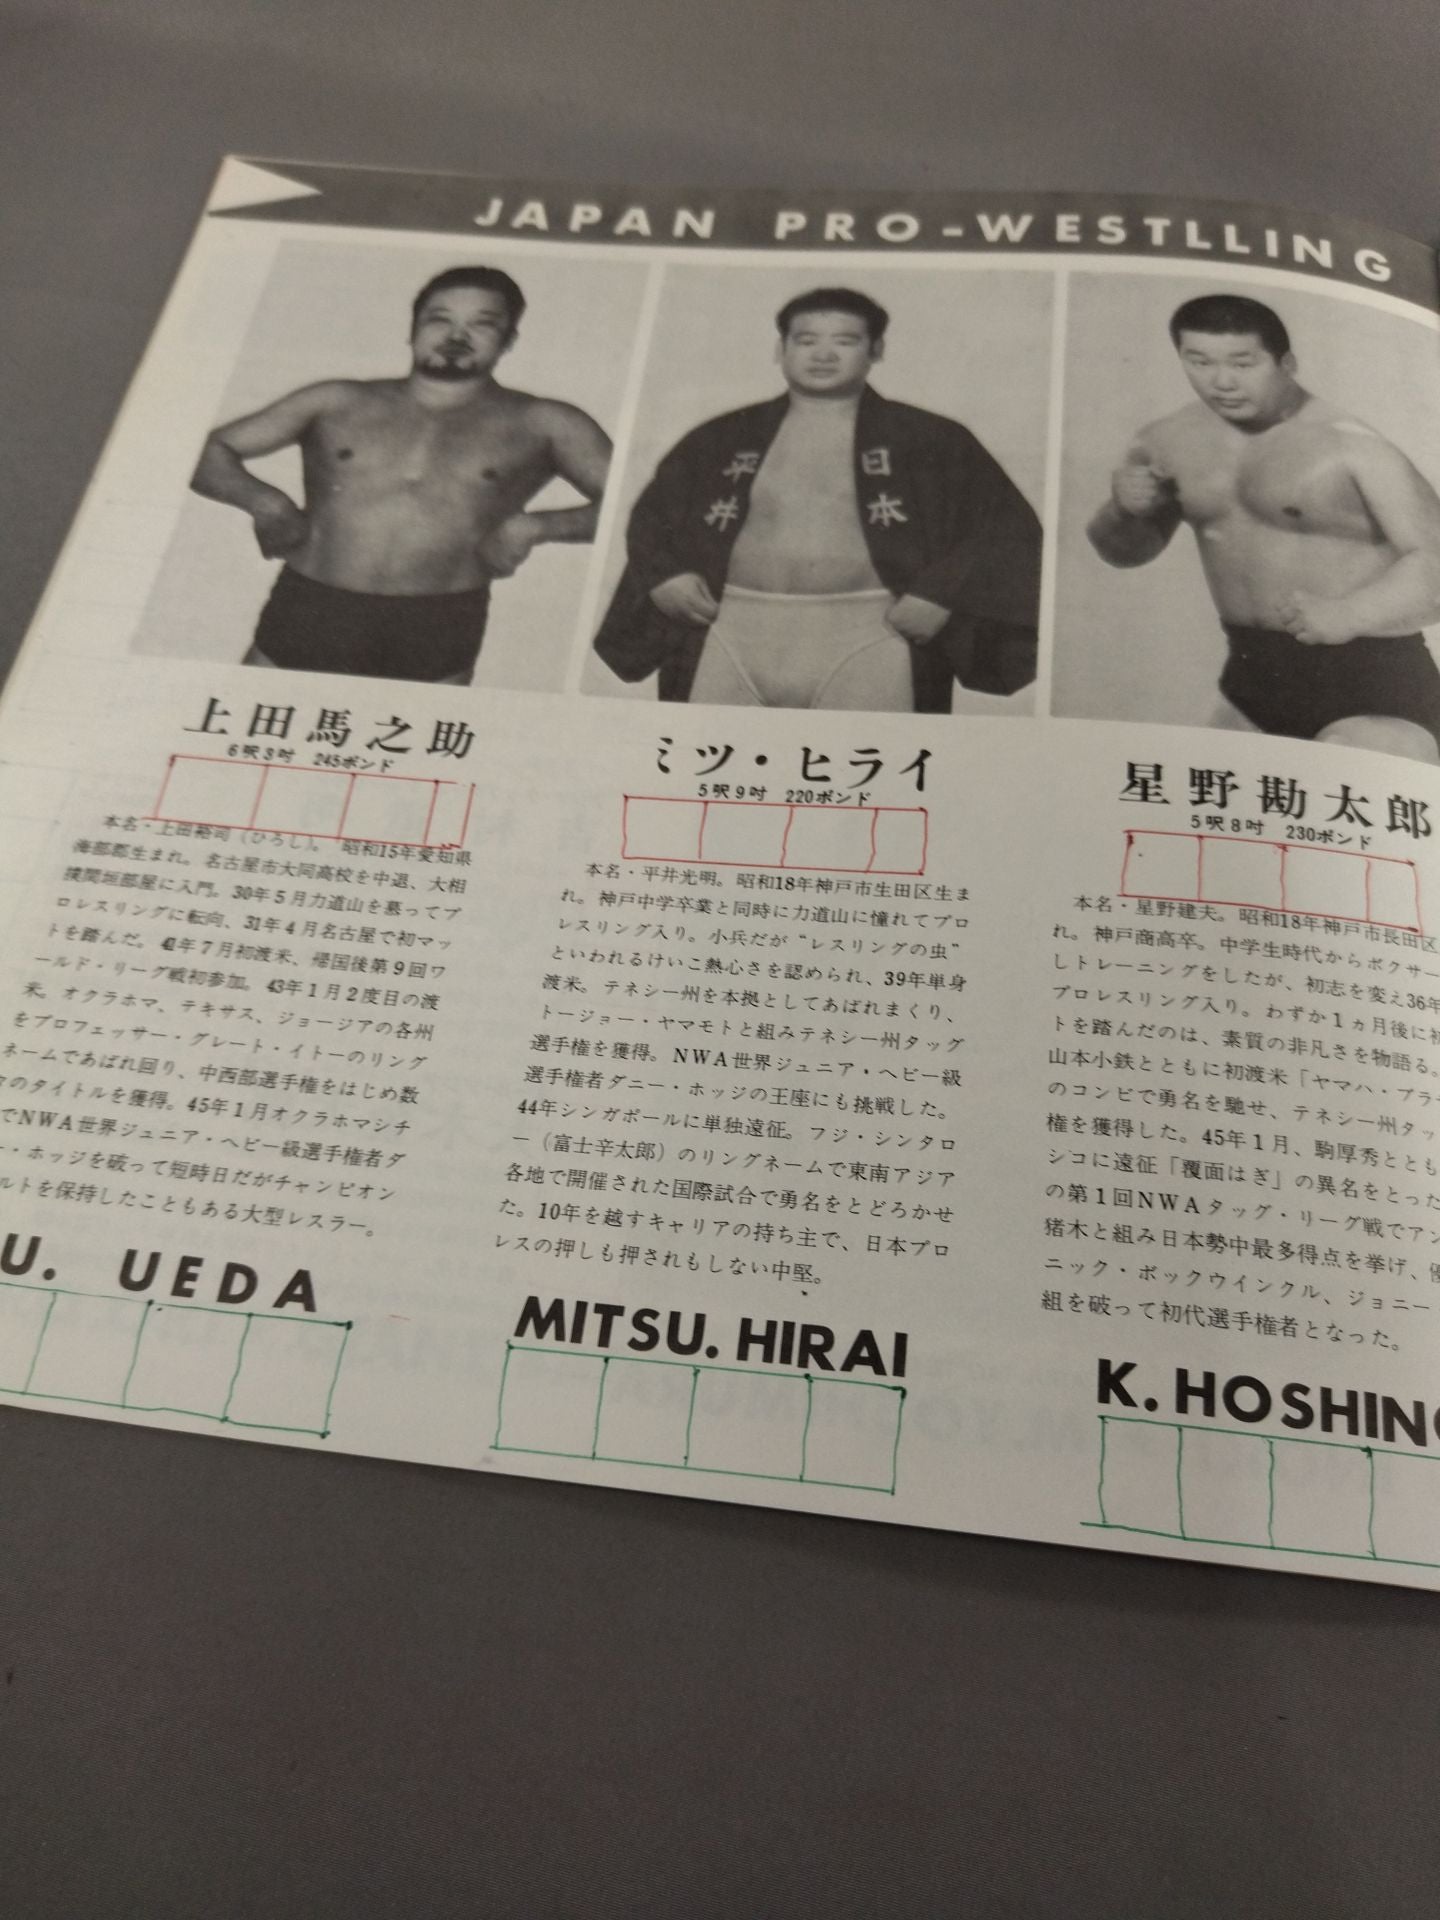 JAPAN PRO-WESTLLING
平井
日本
上田馬之助
6呎3吋 245ポンド
本名・上田裕司（ひろし）。昭和15年愛知県
海部郡生まれ。名古屋市大同高校を中退、大相
撲間垣部屋に入門。30年5月力道山を慕ってプ
ロレスリングに転向、31年4月名古屋で初マッ
トを踏んだ。41年7月初渡米、帰国後第9回ワ
ールド・リーグ戦初参加。43年1月2度目の渡
米。オクラホマ、テキサス、ジョージアの各州
をプロフェッサー・グレート・イトーのリング
ネームであばれ回り、中西部選手権をはじめ数
のタイトルを獲得。45年1月オクラホマシチ
でNWA世界ジュニア・ヘビー級選手権者ダ
ー・ホッジを破って短時日だがチャンピオン
ルトを保持したこともある大型レスラー。
U. UEDA
ミツ・ヒライ
5呎9吋 220ポンド
本名・平井光明。昭和18年神戸市生田区生ま
れ。神戸中学卒業と同時に力道山に憧れてプロ
レスリング入り。小兵だが“レスリングの虫”
といわれるけいこ熱心さを認められ、39年単身
渡米。テネシー州を本拠としてあばれまくり、
トージョー・ヤマモトと組みテネシー州タッグ
選手権を獲得。NWA世界ジュニア・ヘビー級
選手権者ダニー・ホッジの王座にも挑戦した。
44年シンガポールに単独遠征。フジ・シンタロ
ー（富士辛太郎）のリングネームで東南アジア
各地で開催された国際試合で勇名をとどろかせ
た。10年を越すキャリアの持ち主で、日本プロ
レスの押しも押されもしない中堅。
MITSU. HIRAI
星野勘太郎
5呎8吋 230ポンド
本名・星野建夫。昭和18年神戸市長田区
れ。神戸商高卒。中学生時代からボクサー
しトレーニングをしたが、初志を変え36年
プロレスリング入り。わずか1ヵ月後に初
トを踏んだのは、素質の非凡さを物語る。
山本小鉄とともに初渡米「ヤマハ・ブラ
のコンビで勇名を馳せ、テネシー州タッ
権を獲得した。45年1月、駒厚秀ととも
シコに遠征「覆面はぎ」の異名をとった
の第1回NWAタッグ・リーグ戦でアン
猪木と組み日本勢中最多得点を挙げ、優
ニック・ボックウインクル、ジョニー・
組を破って初代選手権者となった。
K. HOSHINO